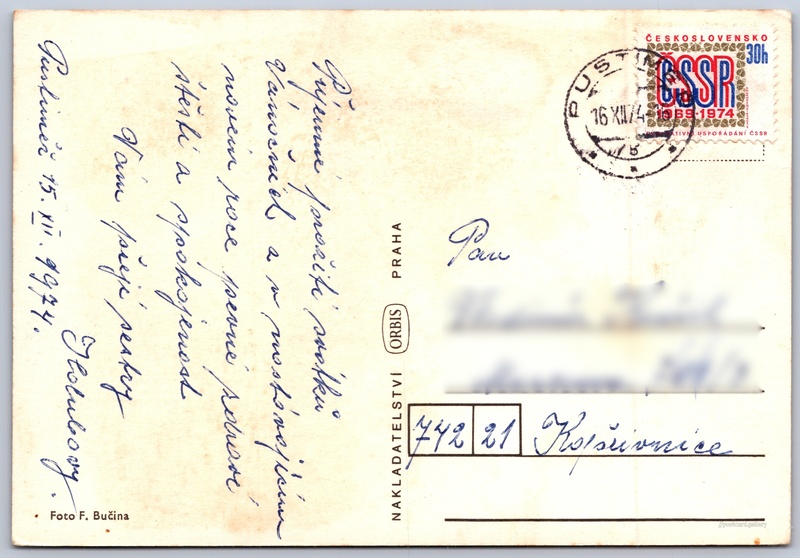 Příjemné prožití svátků
Vánočních a v nastávajícím
novém roce pevné zdraví
štěstí a spokojenost
Vám přejí sestry
Holubovy.
Pustiměř 15. XII. 1974.
Foto F. Bučina
NAKLADATELSTVÍ ORBIS PRAHA
ČESKOSLOVENSKO
30h
ČSSR
1969-1974
USPOŘÁDÁNÍ ČSSR
PUSTIM
16.XII.74
Pan
742 21 Kopřivnice
//postcard.gallery